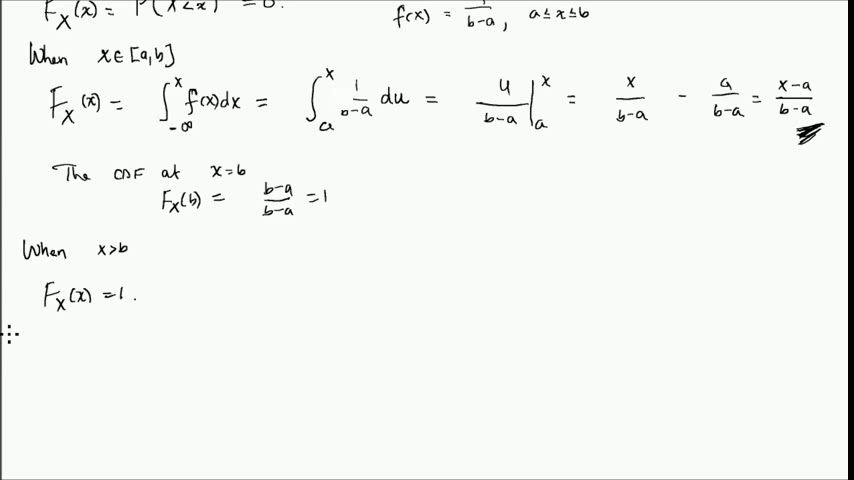 F_X(x) = P(X<x) = 0.
f(x) = 1/(b-a), a≤x≤b
When x∈[a,b]
F_X(x) = ∫_{-∞}^{x} f(x)dx = ∫_{a}^{x} 1/(b-a) du = u/(b-a) |_{a}^{x} = x/(b-a) - a/(b-a) = (x-a)/(b-a)
The CDF at x=b
F_X(b) = (b-a)/(b-a) = 1
When x>b
F_X(x) = 1.